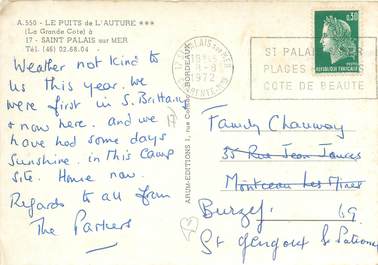 A.550 - LE PUITS de L'AUTURE ***
(La Grande Côte) à
17 - SAINT PALAIS sur MER
Tél. (46) 02.68.04
Weather not kind to
us this year. We
were first in S. Brittany
+ now here. and we
have had some days
Sunshine. in this Camp
site. Home now.
Regards to all from
The Parkers
ARUM-EDITIONS 1, rue BORDEAUX
17 PALAIS SUR MER
8-8
1972
0,50
REPUBLIQUE FRANÇAISE
ST PALAIS MER
PLAGES
COTE DE BEAUTE
Family Chauway
35 Rue Jean Jaures
Montceau Les Mines
Burzy
St Gengoux le